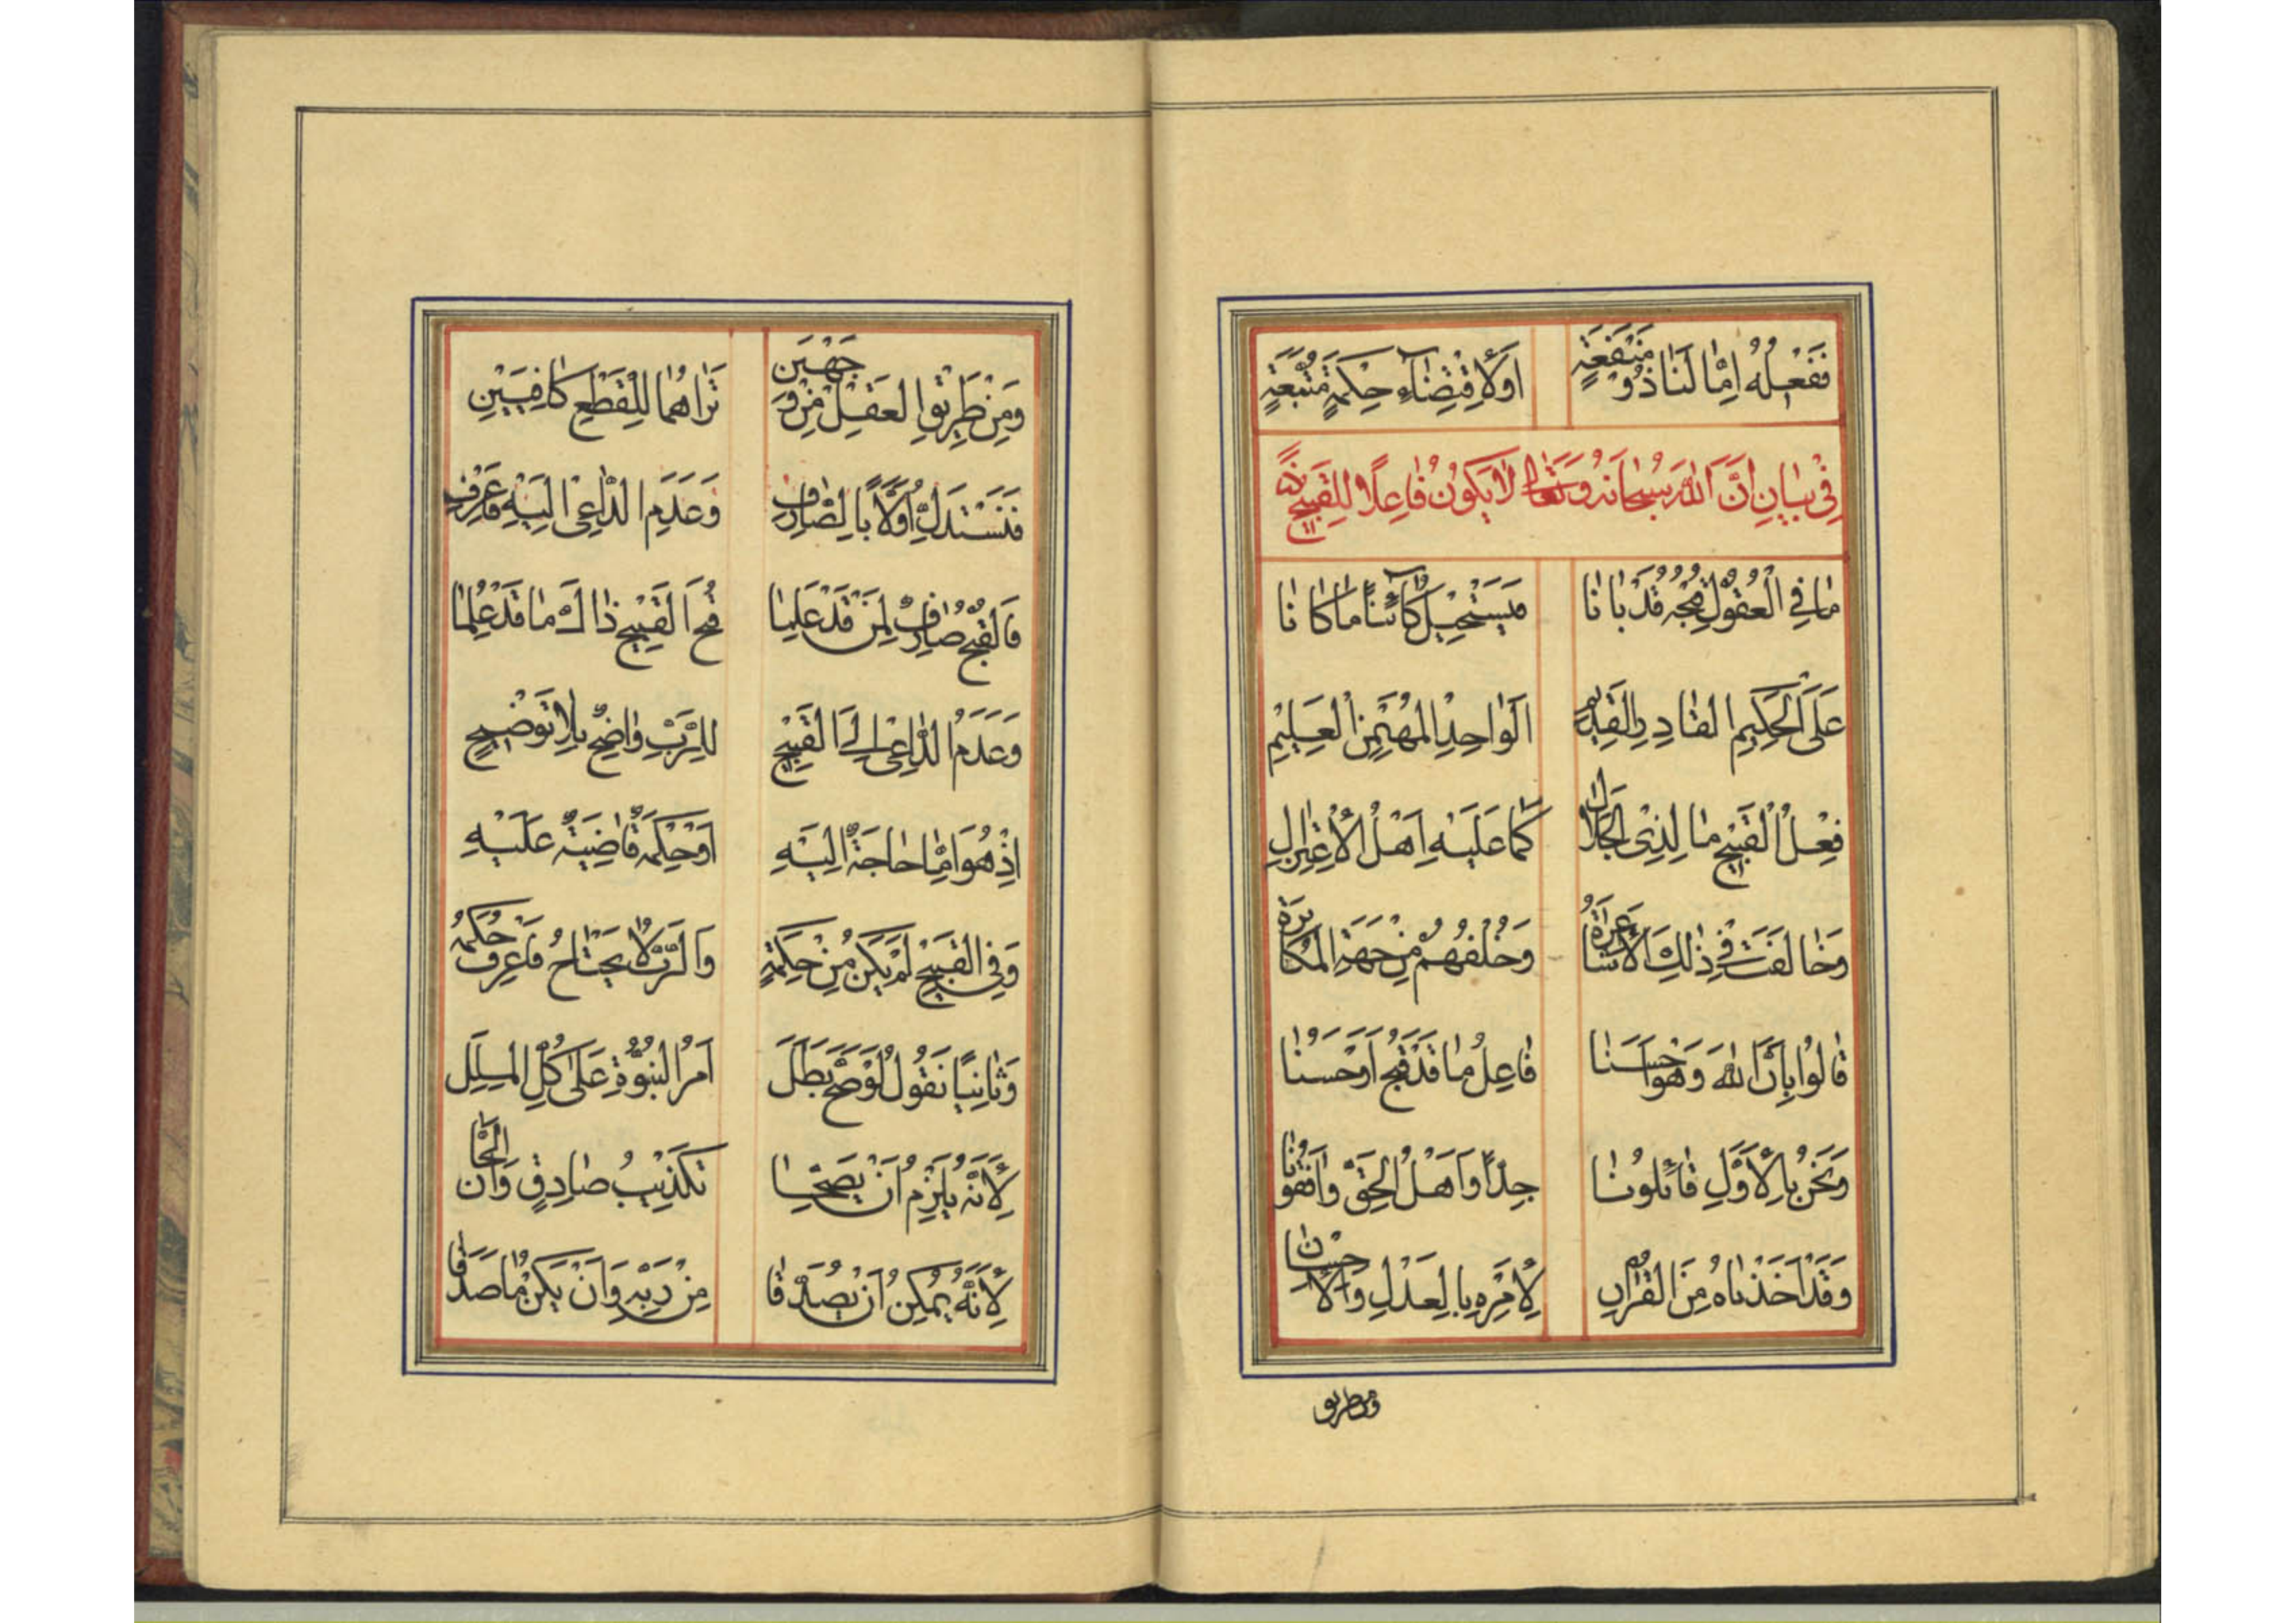 فَفِعْلُهُ اِمّٰا لَنٰا ذُوْ مَنْفَعَةٍ اَوْ لِاقْتِضٰاءِ حِكْمَةٍ مُتَّبَعَةٍ
فِيْ بَيٰانِ اَنَّ اللّٰهَ سُبْحٰانَهُ وَتَعٰالٰى لٰا يَكُوْنُ فٰاعِلًا لِلْقَبِيْحِ
مٰا فِي الْعُقُوْلِ قُبْحُهُ قَدْ بٰانٰا فَيَسْتَحِيْلُ كٰائِنًا مٰا كٰانٰا
عَلَى الْحَكِيْمِ الْقٰادِرِ الْقَدِيْمِ اَلْوٰاحِدِ الْمُهَيْمِنِ الْعَلِيْمِ
فِعْلُ الْقَبِيْحِ مٰا لِذِي الْجَلٰالِ كَمٰا عَلَيْهِ اَهْلُ الْاِعْتِزٰالِ
وَخٰالَفَتْ فِيْ ذٰلِكَ الْاَشٰاعِرَةُ وَخُلْفُهُمْ مِنْ جِهَةِ الْمُكٰابَرَةِ
قٰالُوْا بِاَنَّ اللّٰهَ وَهْوَ حَسْبُنٰا فٰاعِلُ مٰا قَدْ قَبُحَ اَوْ حَسُنٰا
وَنَحْنُ بِالْاَوَّلِ قٰائِلُوْنٰا جِدًّا وَاَهْلُ الْحَقِّ وٰافَقُوْنٰا
وَقَدْ اَخَذْنٰاهُ مِنَ الْقُرْاٰنِ لِاَمْرِهِ بِالْعَدْلِ وَالْاِحْسٰانِ
ومن طريق
وَمِنْ طَرِيْقِ الْعَقْلِ مِنْ وَجْهَيْنِ تَرٰاهُمٰا لِلْقَطْعِ كٰافِيَيْنِ
فَنَسْتَدِلُّ اَوَّلًا بِالصّٰارِفِ وَعَدَمِ الدّٰاعِيْ اِلَيْهِ فَاعْرِفِ
فَالْقُبْحُ صٰارِفٌ لِمَنْ قَدْ عَلِمٰا قُبْحَ الْقَبِيْحِ ذٰاكَ مٰا قَدْ عُلِمٰا
وَعَدَمُ الدّٰاعِيْ اِلَى الْقَبِيْحِ لِلرَّبِّ وٰاضِحٌ بِلٰا تَوْضِيْحٍ
اِذْ هُوَ اِمّٰا حٰاجَةٌ اِلَيْهِ اَوْ حِكْمَةٌ قٰاضِيَةٌ عَلَيْهِ
وَفِي الْقَبِيْحِ لَمْ يَكُنْ مِنْ حِكْمَةٍ وَالرَّبُّ لٰا يَحْتٰاجُ فَاعْرِفْ حُكْمَهُ
وَثٰانِيًا نَقُوْلُ لَوْ صَحَّ بَطَلَ اَمْرُ النُّبُوَّةِ عَلٰى كُلِّ الْمِلَلِ
لِاَنَّهُ يَلْزَمُ اَنْ يَصِحّٰا تَكْذِيْبُ صٰادِقٍ وَاِنْ اَلَحّٰا
لِاَنَّهُ يُمْكِنُ اَنْ يُصَدَّقٰا مِنْ رَبِّهِ وَاِنْ يَكُنْ مٰا صَدَقٰا